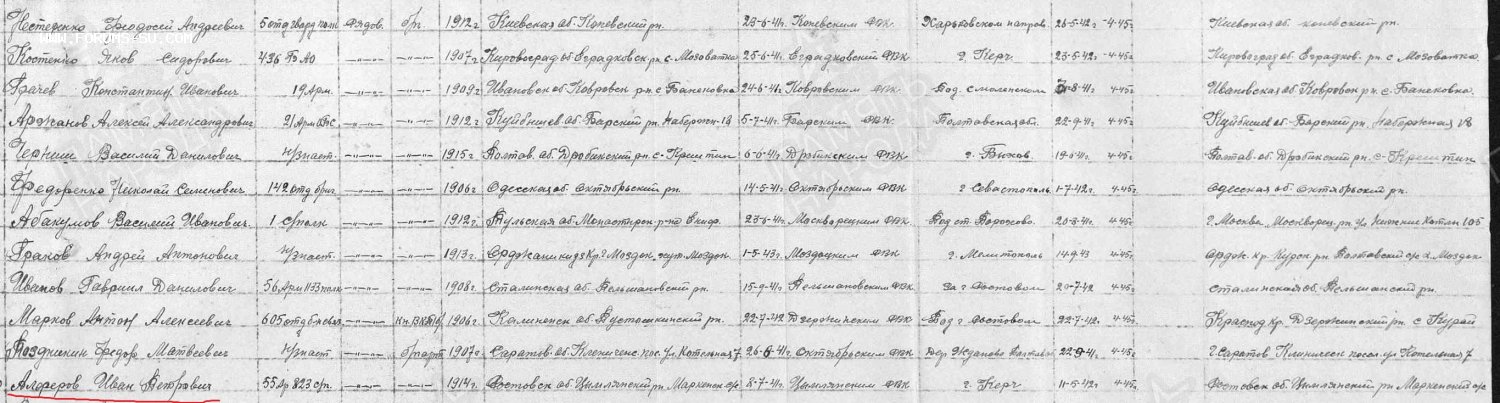 Нестеренко Феодосий Андреевич 5 отд гвард полк Рядов. бп. 1912 г. Киевская об. Каневский рн. 23-6-41г. Каневским РВК. Харьковском направ. 26-5-42г -4-45г. Киевская об. каневский рн.
Костенко Яков Сидорович 436 БАО 1907 г. Кировоград об. Еградковск рн. с Мозоватка 25-6-41г. Еградковский РВК г. Керч 23-5-42г. 4-45г. Кировоград об. Еградков. рн. с Мозоватка.
Грачев Константин Иванович 19 Арм. 1909 г. Ивановск об. Ковровск рн. с. Банековка 24-6-41г. Ковровским РВК. Под. Смоленском 8-41г. 4-45г. Ивановская об. Ковровск рн. с. Банековка.
Арджанов Алексей Александрович 21 Арм. 1912 г. Куйбышев об. Барский рн. Набереж. 18 5-7-41г. Барским РВК. Полтавская об. 22-9-41г. 4-45г. Куйбышев об. Барский рн. Набережная 18
Черниш Василий Данилович н/знает. 1915 г. Полтав. об. Дробинский рн. с. Крештин 6-6-41г. Дробинским РВК. г. Быхов. 19-6-41г. 4-45г. Полтав. об. Дробинский рн. с. Крештин
Федоренко Николай Семенович 142 отд бриг 1906 г. Одесская об. Октябрьский рн. 14-5-41г. Октябрьским РВК г Севастополь. 1-7-42г. 4-45г. Одесская об. Октябрьский рн.
Абакумов Василий Иванович. 1 с/полк 1912 г. Тульская об. 23-6-41г. Москворецким РВК. Под ст. 20-8-41г. 4-45г. г. Москва. Москворец. рн. ул Нижние Котлы 105
Граков Андрей Антонович н/знает. 1913 г. Орджоникидз Кр. г Моздок, хут. Моздок. 1-5-43г. Моздоцким РВК г. Мелитополь 14-9-43 4-45г. Ордж. кр. Курск рн. Полтавский с/с х. Моздок
Иванов Гавриил Данилович 56 Арм 1133 полк 1908 г. Сталинская об. Тельмановский рн. 15-9-41г. Тельмановским РВК. за г Ростовом 20-7-42 4-45г. Сталинская об. Тельманский рн.
Марков Антон Алексеевич 605 отд 1906 г. Калининск об. Пустошкинский рн. 22-7-42 Дзержинским РВК Под г. Ростовом 22-7-42г. 4-45г. Краснод кр. Дзержинский рн. с Курай
Поздникин Федор Матвеевич н/знает 1907 г. Саратов об. Кленичес. пос. ул. Котельная 7. 26-6-41г. Октябрьским РВК Дер. Жданово Полтавск 22-9-41г 4-45г. г. Саратов Клиническ посел. ул Котельная 7
Алферов Иван Петрович 55 Ар 823 сп. 1914 г. Ростовск об. Цымлянский рн. Маркенск с/с 8-7-41г. Цымлянским РВК г. Керч 11-5-42г. 4-45г. Ростовск об. Цымлянский рн. Маркенский с/с